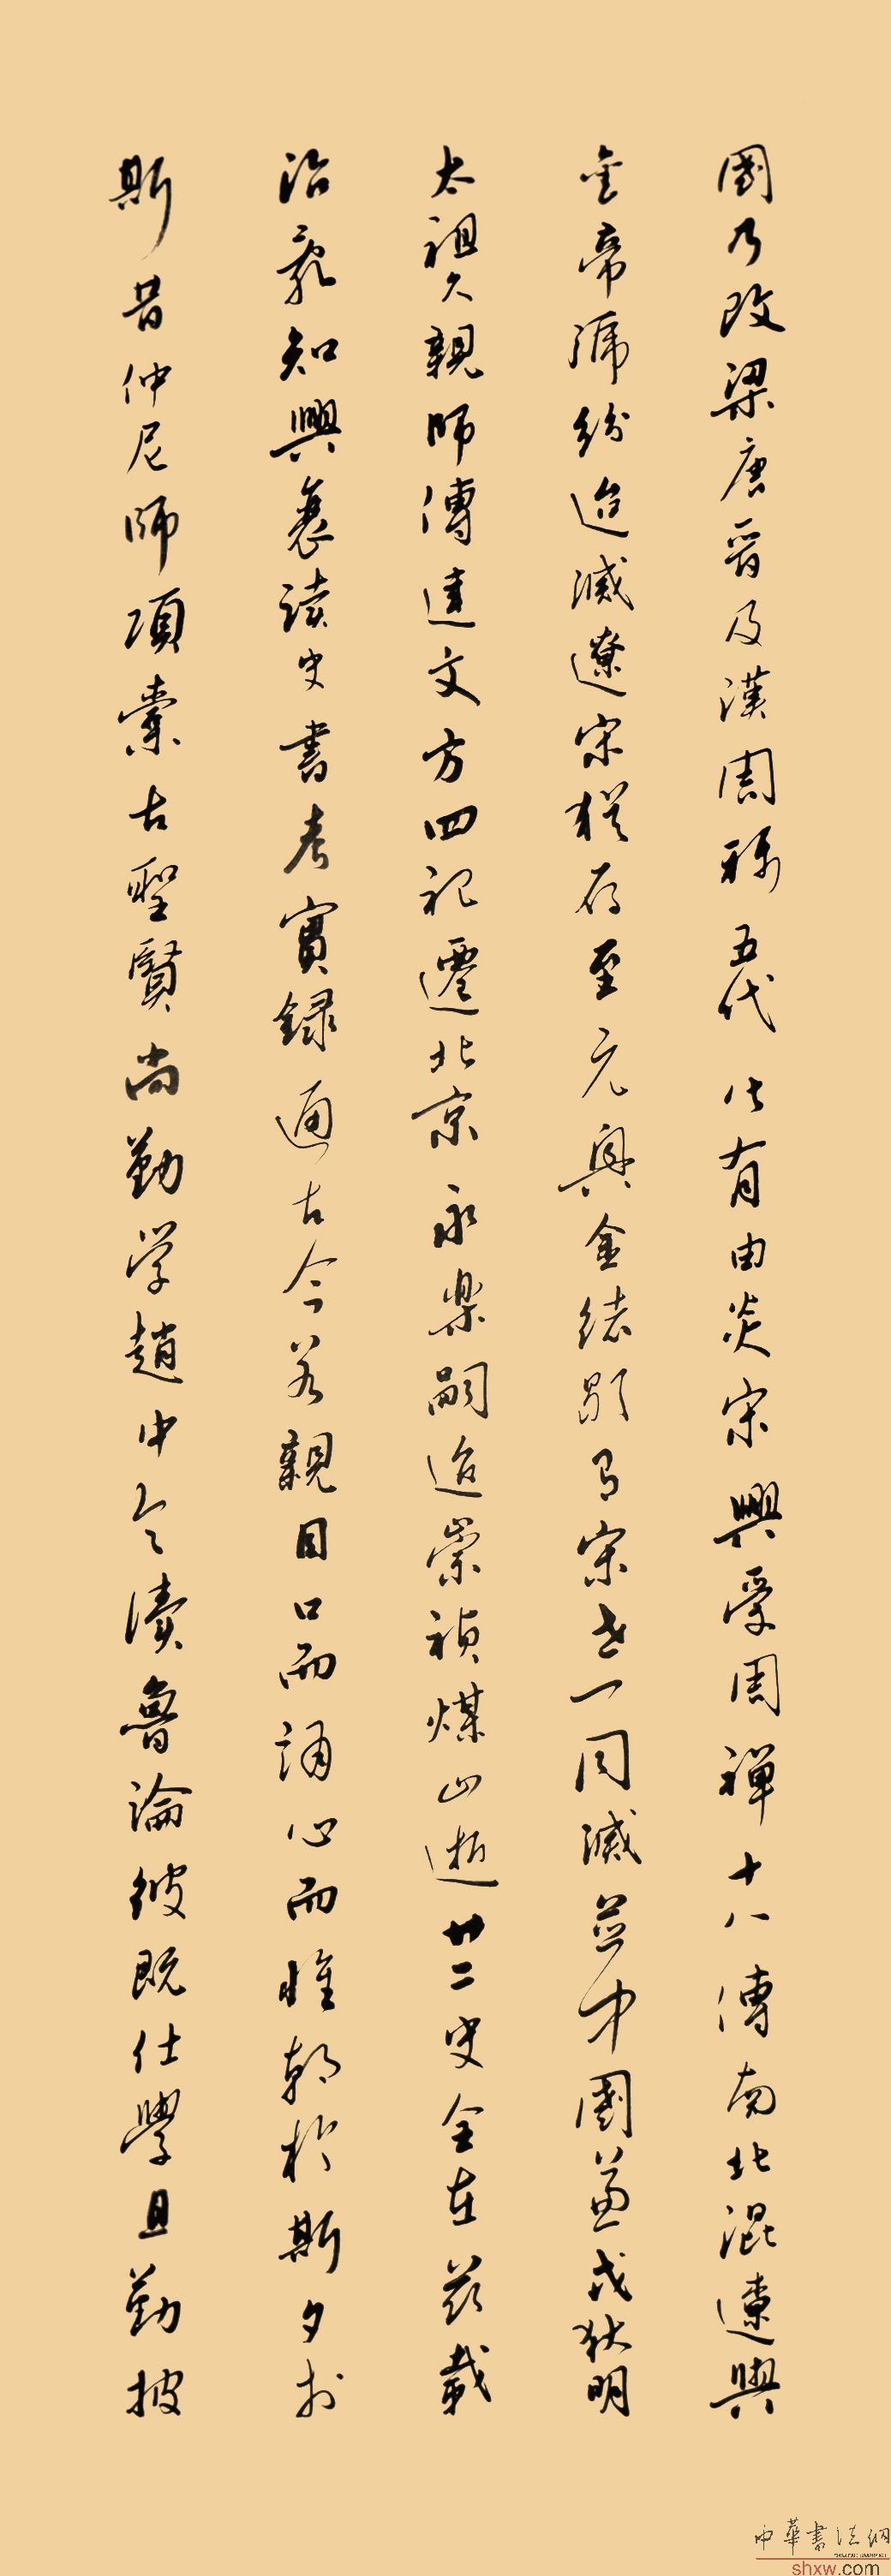 國乃改梁唐晉及漢周稱五代皆有由炎宋興受周禪十八傳南北混遼與
金帝號紛迨滅遼宋猶存至元興金緒歇有宋世一同滅並中國兼戎狄明
太祖久親師傳建文方四祀遷北京永樂嗣迨崇禎煤山逝廿二史全在茲載
治亂知興衰读史書考實録通古今若親目口而誦心而惟朝於斯夕於
斯昔仲尼師項橐古聖賢尚勤学趙中令讀魯論彼既仕學且勤披
中華書法網
shxw.com